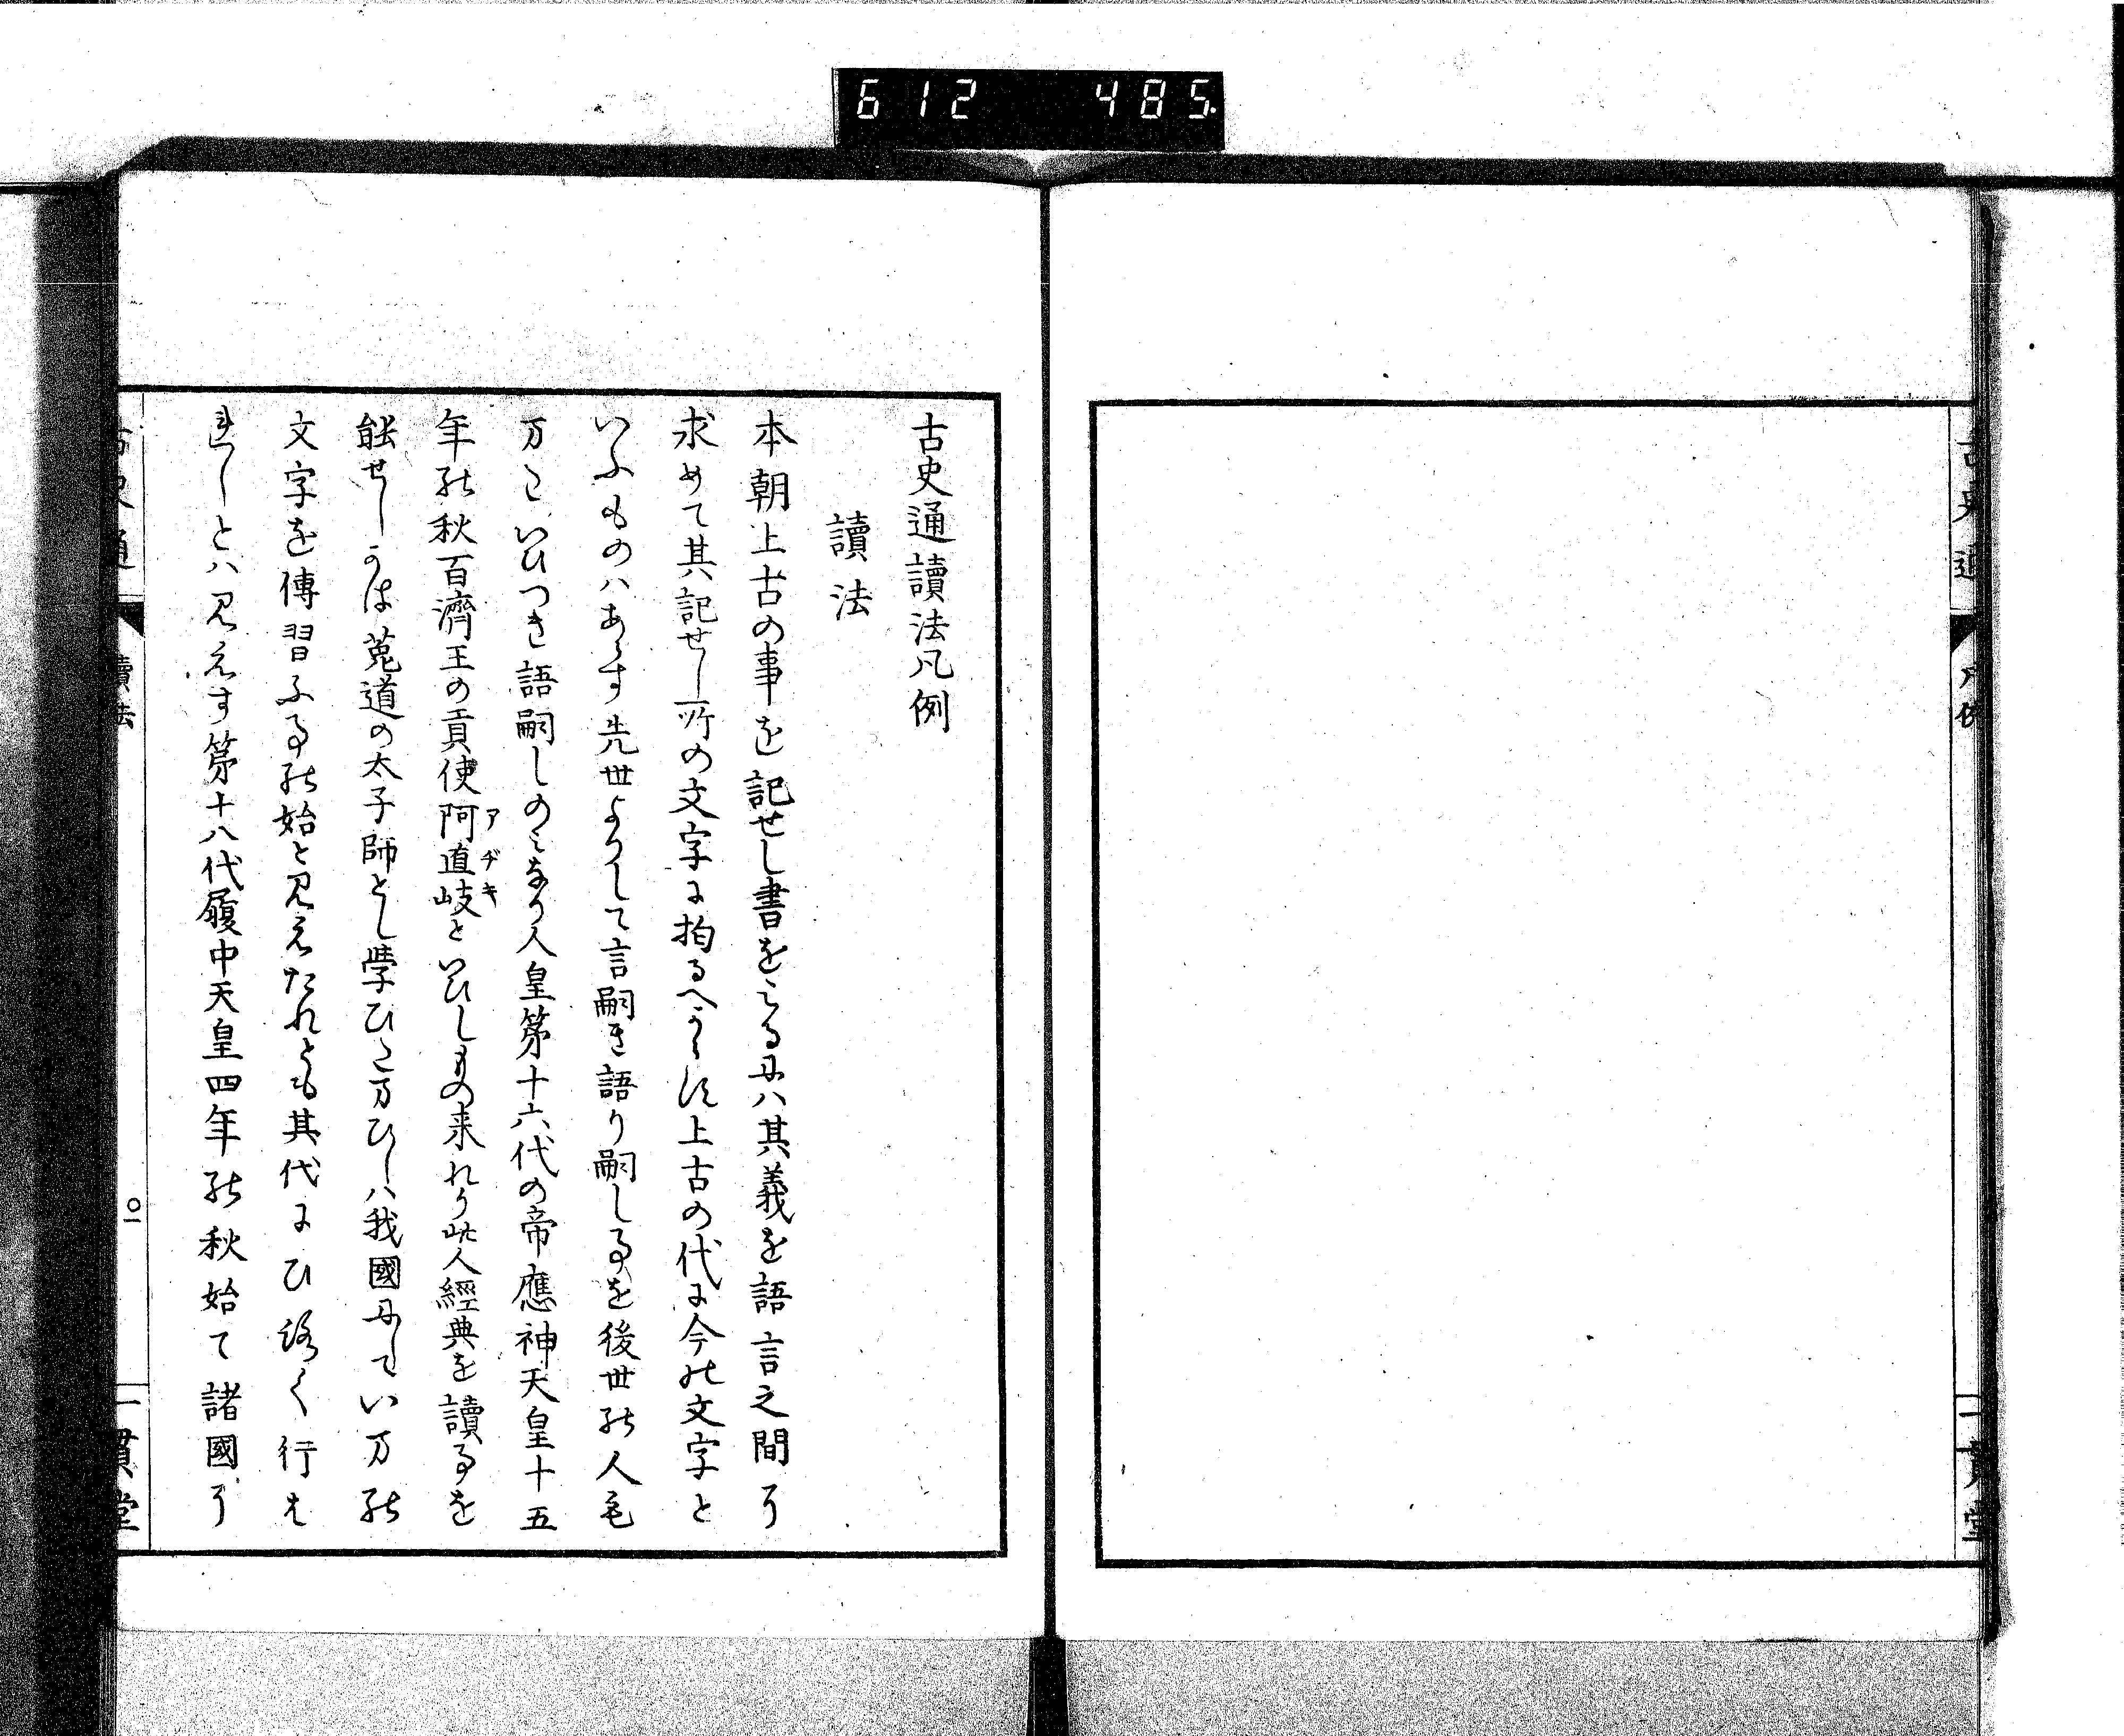 612 485
古史通讀法凡例
讀法
本朝上古の事を記せし書をみるにハ其義を語言之間に
求めて其記せし所の文字に拘るへからす上古の代に今の文字と
いふものハあらす先世よりして言嗣き語り嗣しるを後世の人も
またいひつき語嗣しのみなり人皇第十六代の帝應神天皇十五
年の秋百濟王の貢使阿直岐といひしもの来れり此人經典を讀る事を
アヂキ
能せしかは菟道の太子師とし學ひたまひしハ我國にしていまの
文字を傳習ふ事の始と見えたれとも其代にひろく行は
れしとハ見えす第十八代履中天皇四年の秋始て諸國に
古史通
讀法
一貫堂
古史通
凡例
一貫堂